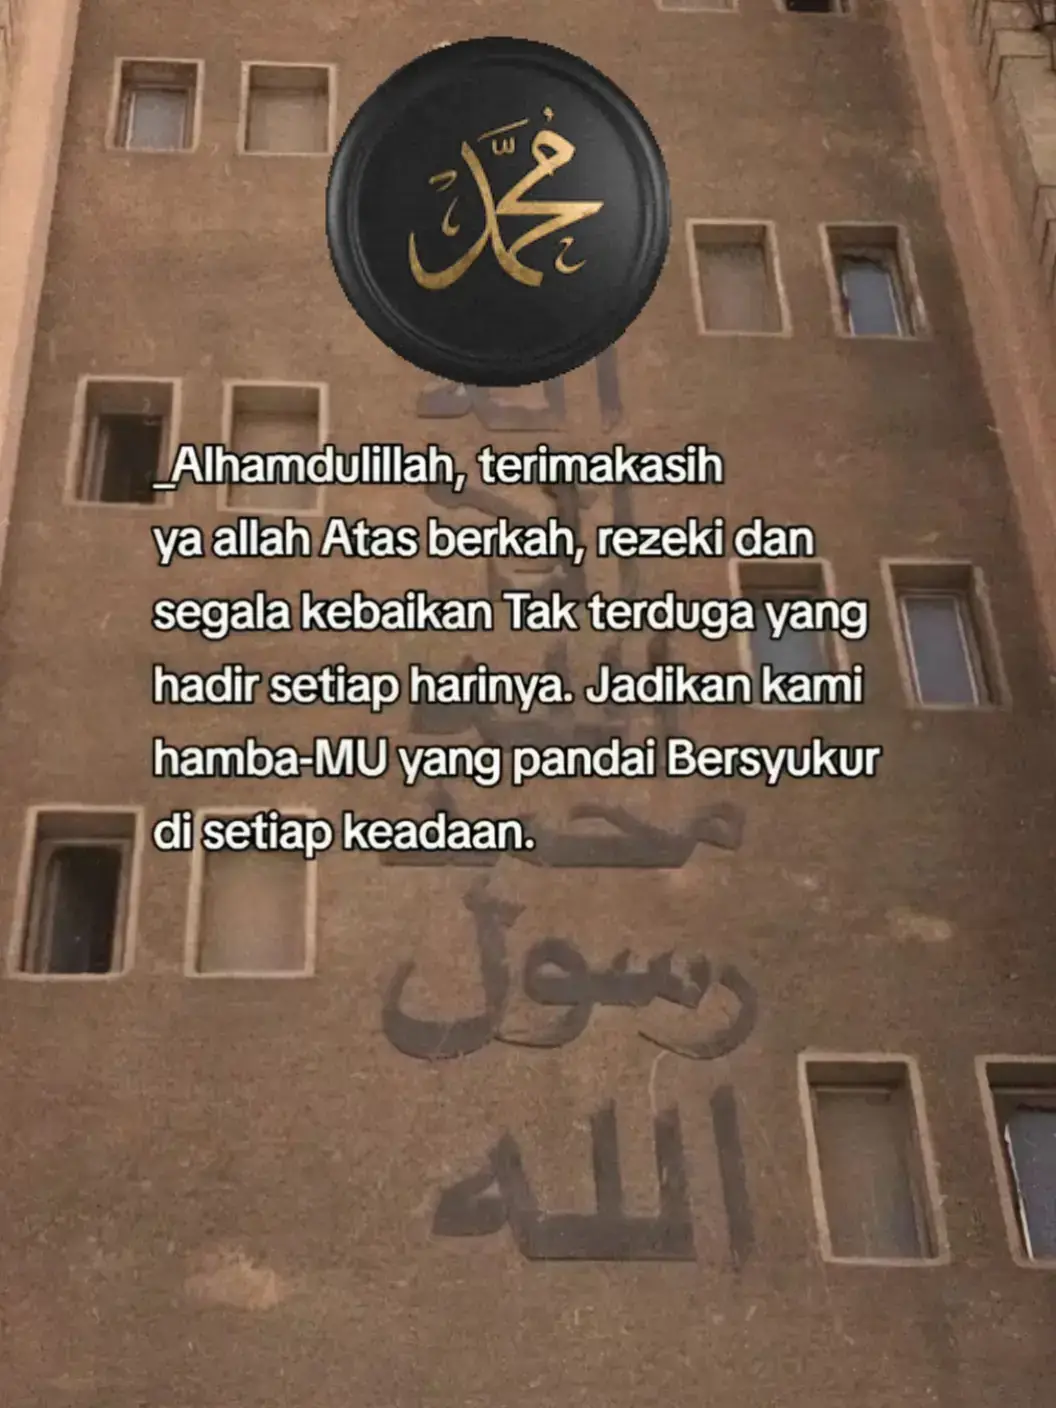 مُحَمَّد
الله
_Alhamdulillah, terimakasih
ya allah Atas berkah, rezeki dan
segala kebaikan Tak terduga yang
hadir setiap harinya. Jadikan kami
hamba-MU yang pandai Bersyukur
di setiap keadaan.
محمد
رسول
الله